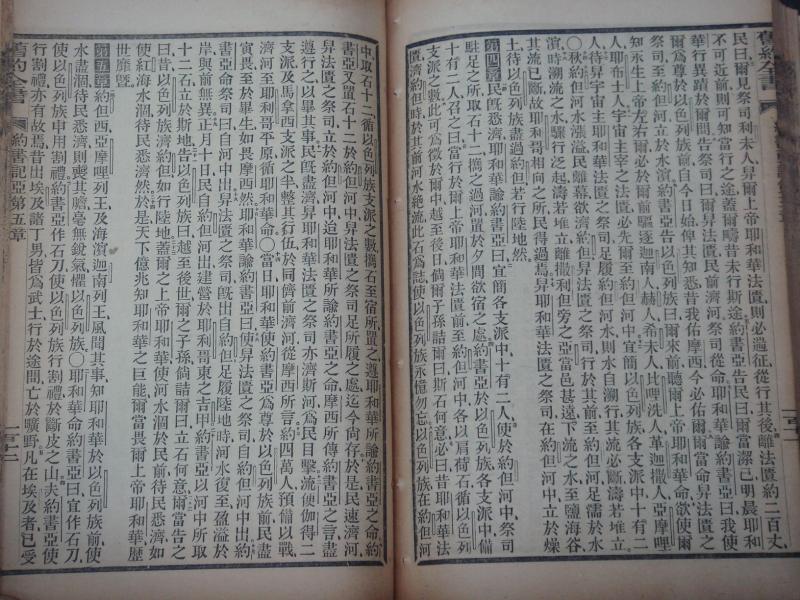 民曰爾見祭司利未人舁爾上帝耶和華法匱則必過征從行其後離法匱約二百丈
不可近前則可知當行之途蓋爾疇昔未行斯途約書亞告民曰爾當潔己明晨耶和
華行異蹟於爾間告祭司曰舁法匱民前濟河祭司從命耶和華諭約書亞曰我使
爾爲尊於以色列族前自今日始俾其知悉昔我佑摩西今必佑爾爾當命舁法匱之
祭司至約但河立於水濱約書亞告以色列族曰爾來前聽爾上帝耶和華命欲使爾
知永生上帝左右爾必於爾前驅逐迦南人赫人希未人比哩洗人革迦撒人亞摩哩
人耶布士人宇宙主宰之法匱必先爾至約但河中宜簡以色列族支派中十有二
人待舁宇宙主耶和華法匱之祭司足履約但河水則水自溯行其流必斷濤若堆立
○秋約但河水漲溢民離幕欲濟約但舁法匱之祭司行於其前至約但河足濡於水
濱時溯流之水驟行泛起濤若堆立離撒利但旁之亞當邑甚遠下流之水至鹽海谷
其流已斷故耶利哥相向之所民得過焉舁耶和華法匱之祭司在約但河中立於燥
土待以色列族盡過約但若行陸地然
第四章 民旣悉濟耶和華諭約書亞曰宜簡各支派中十有二人使於約但河中祭司
駐足之所取石十二攜之過河置於夕間欲宿之處約書亞於以色列族各支派中備
十有二人召之曰當行於爾上帝耶和華法匱前至約但河中各以肩荷石循以色列族
支派之數此可爲徵於爾中越至後日倘爾子孫詰爾曰斯石何意必曰昔耶和華法
匱濟約但時於其前河水絕流此石爲誌使以色列族永憶勿忘以色列族在約但河
中取石十二循以色列族支派之數攜石至宿所置之遵耶和華所諭約書亞之命約
書亞又置石十二於約但河中舁法匱之祭司足所履之處迄今尙存於是民速濟河
舁法匱之祭司立於約但河中迨耶和華所諭約書亞命民循摩西所傳約書亞之言盡
遵行之以畢其事民旣盡濟舁耶和華法匱之祭司亦濟斯河爲民目擊流便伽得二
支派及馬拿西支派之半整其行伍於同儕前濟河從摩西所言約四萬人預備以戰
濟河至耶利哥平原循耶和華命○當日耶和華使約書亞爲尊於以色列族前民盡
寅畏至於畢生如畏摩西然耶和華諭約書亞曰使舁法匱之祭司自約但河中出約
書亞命祭司曰自河中出舁法匱之祭司旣出自約但足履陸地時河水復至盈溢於
岸與前無異正月十日民自約但河出建營於耶利哥東之吉甲約書亞以河中所取
十二石立於斯地告以色列族曰越至後世爾之子孫倘詰爾曰立石何意爾當告之
曰昔以色列族濟約但如行陸地蓋爾之上帝耶和華使河水涸於民前待民悉濟如
使紅海水涸待民悉濟然於是天下億兆知耶和華之巨能爾當畏爾上帝耶和華歷
世靡曁
第五章 約但西亞摩哩列王及海濱迦南列王風聞其事知耶和華於以色列族前使
水盡涸待民悉濟則喪其膽毫無銳氣懼以色列族○耶和華命約書亞曰宜作石刀
使以色列族中用割禮約書亞作石刀使以色列族行割禮於斷皮之山夫約書亞使
行割禮亦有故焉昔出埃及諸丁男皆爲武士行於途間亡於曠野凡在埃及者已受
舊約全書
約書亞記
第五章
舊約全書